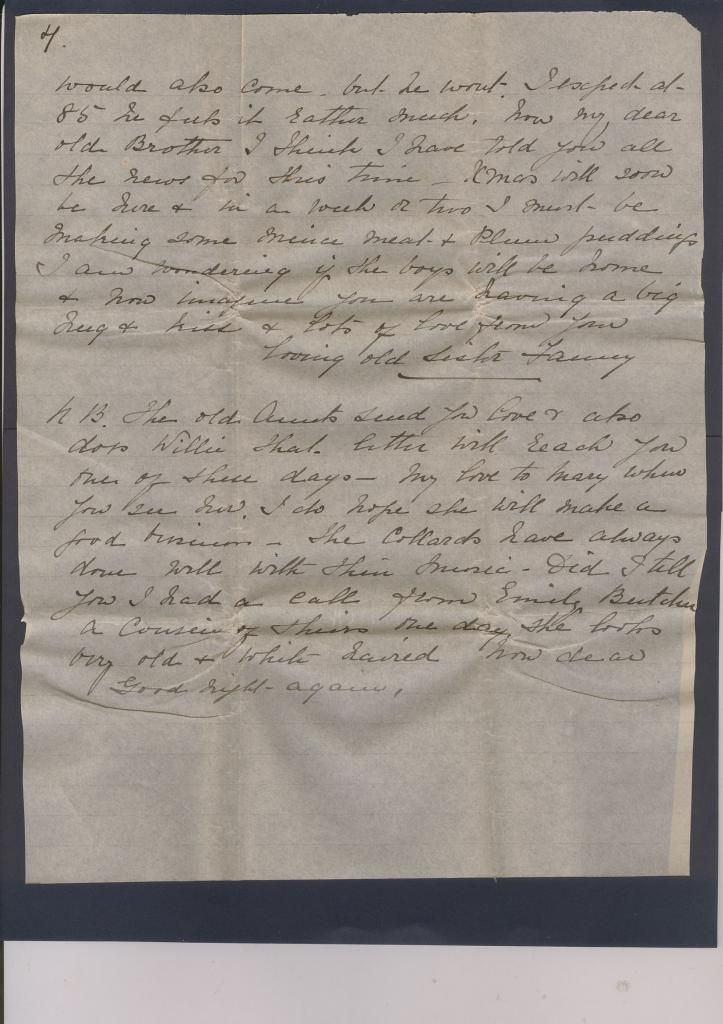 4.
would also come. but he wont. I expect at
85 he feels it rather much. Now my dear
old Brother I think I have told you all
the news for this time - Xmas will soon
be here & in a week or two I must be
making some mince meat & Plum puddings
I am wondering if the boys will be home
& now imagine you are having a big
hug & kiss & lots of love from your
loving old Sister Fanny
N B. The old Aunts send you love & also
does Willie that letter will reach you
one of these days - My love to Mary when
you see her. I do hope she will make a
good - The Collards have always
done well with their music - Did I tell
you I had a call from Emily Butcher
a Cousin of theirs one day, she looks
very old & white haired Now dear
Good night again.